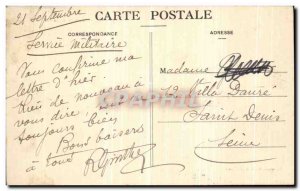 21 Septembre
CARTE POSTALE
CORRESPONDANCE
ADRESSE
Service Militaire
Vous confirme ma
lettre d'hier
Rien de nouveau à
vous dire
toujours bien
Bons baisers
à tous
Madame
12 Villa Faure
Saint Denis
Seine